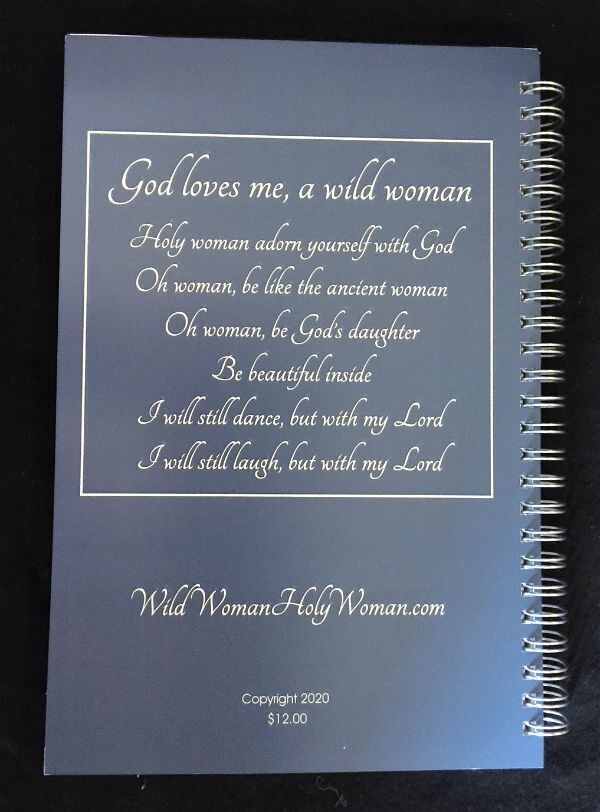 God loves me, a wild woman
Holy woman adorn yourself with God
Oh woman, be like the ancient woman
Oh woman, be God's daughter
Be beautiful inside
I will still dance, but with my Lord
I will still laugh, but with my Lord
WildWomanHolyWoman.com
Copyright 2020
$12.00